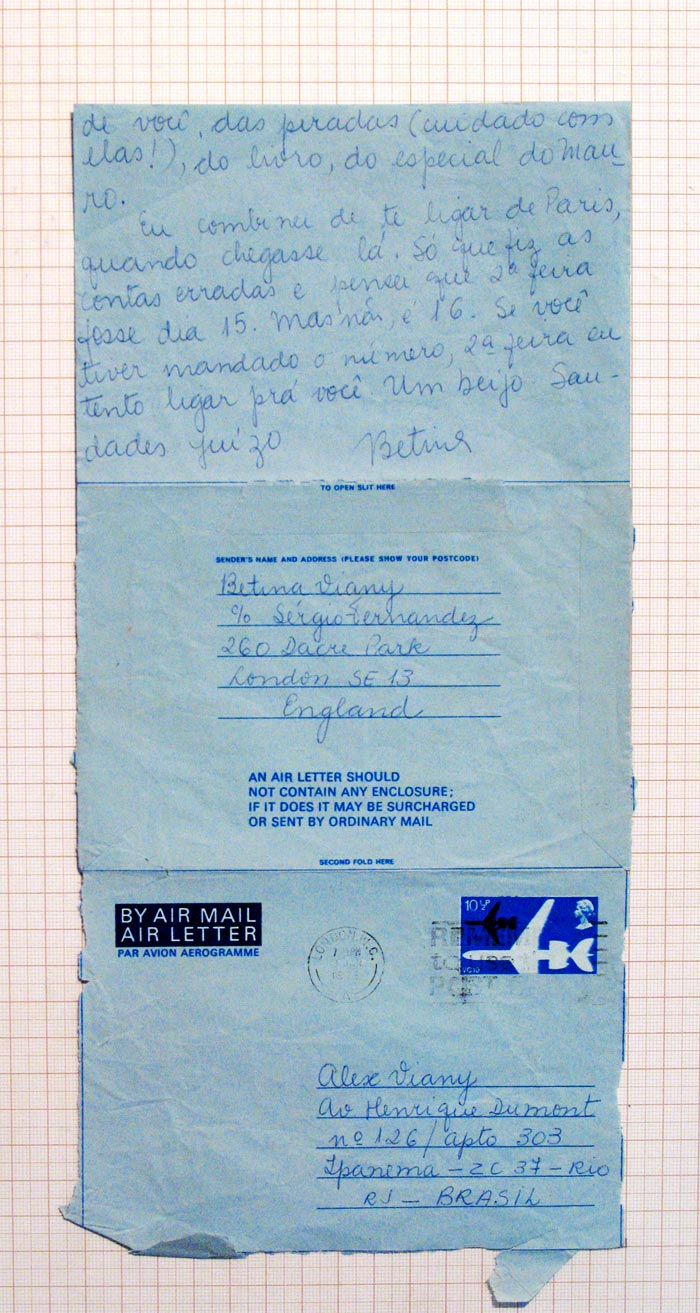 de você, das piradas (cuidado com
elas!), do livro, do especial do Mau-
ro.
Eu combinei de te ligar de Paris,
quando chegasse lá. Só que fiz as
contas erradas e pensei que 2ª feira
fosse dia 15. Mas não, é 16. Se você
tiver mandado o número, 2ª feira eu
tento ligar prá você. Um beijo Sau-
dades juízo Betina
TO OPEN SLIT HERE
SENDER'S NAME AND ADDRESS (PLEASE SHOW YOUR POSTCODE)
Betina Viany
c/o Sérgio Fernandez
260 Dacre Park
London SE 13
England
AN AIR LETTER SHOULD
NOT CONTAIN ANY ENCLOSURE;
IF IT DOES IT MAY BE SURCHARGED
OR SENT BY ORDINARY MAIL
SECOND FOLD HERE
BY AIR MAIL
AIR LETTER
PAR AVION AEROGRAMME
LONDON
10½P
VC10
REMEM
to use
POST
Alex Viany
Av Henrique Dumont
nº 126/apto 303
Ipanema - ZC 37 - Rio
RJ - BRASIL